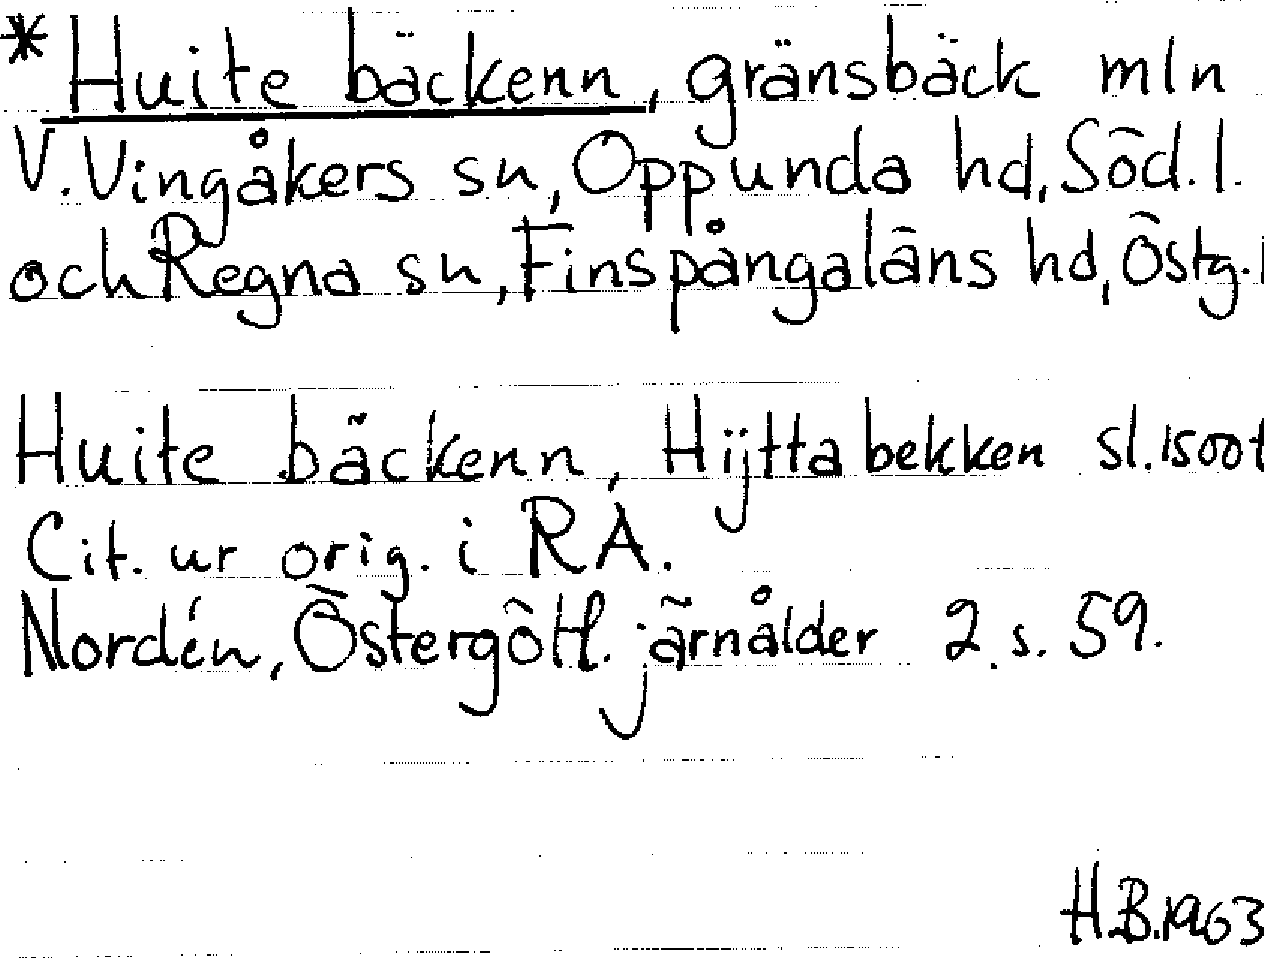 * Huite bäckenn, gränsbäck mln
V. Vingåkers sn, Oppunda hd, Söd. l.
och Regna sn, Finspångaläns hd, Östg. l
Huite bäckenn, Hijttabekken sl. 1500t
Cit. ur orig. i RA.
Nordén, Östergötl. järnålder 2. s. 59.
H.B. 1963